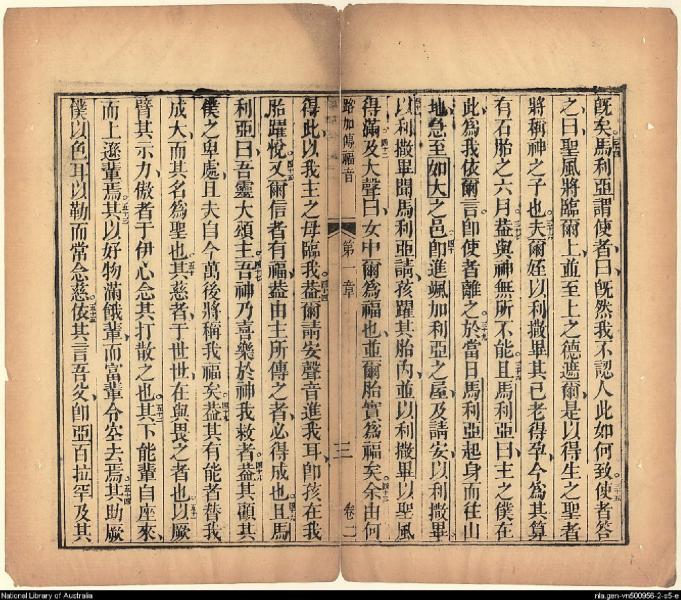 旣矣馬利亞謂使者曰旣然我不認人此如何致使者答
之曰聖風將臨爾上並至上之德遮爾是以得生之聖者
將稱神之子也夫爾姪以利撒畢其已老得孕今為其算
有石胎之六月葢與神無所不能且馬利亞曰主之僕在
此為我依爾言卽使者離之於當日馬利亞起身而往山
地急至如大之邑卽進颯加利亞之屋及請安以利撒畢
以利撒畢聞馬利亞請孩躍其胎內並以利撒畢以聖風
得滿及大聲曰女中爾為福也並爾胎實為福矣余由何
路加傳福音 第一章 三 卷二
得此以我主之母臨我葢爾請安聲音進我耳卽孩在我
胎躍悅又爾信者有福葢由主所傳之者必得成也且馬
利亞曰吾靈大頌主吾神乃喜樂於神我救者葢其顧其
僕之卑處且夫自今萬後將稱我福矣葢其有能者替我
成大而其名為聖也其慈者于世世在與畏之者也以厥
臂其示力傲者于伊心念其打散之也其下能輩自座來
而上遂輩焉其以好物滿餓輩而富輩令空去焉其助厥
僕以色耳以勒而常念慈依其言吾父卽亞百拉罕及其
National Library of Australia
nla.gen-vn500956-2-s5-e